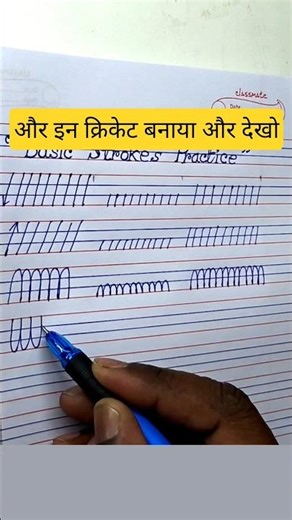 classmate
Date
और इन क्रिकेट बनाया और देखो
Basic Strokes Practice"